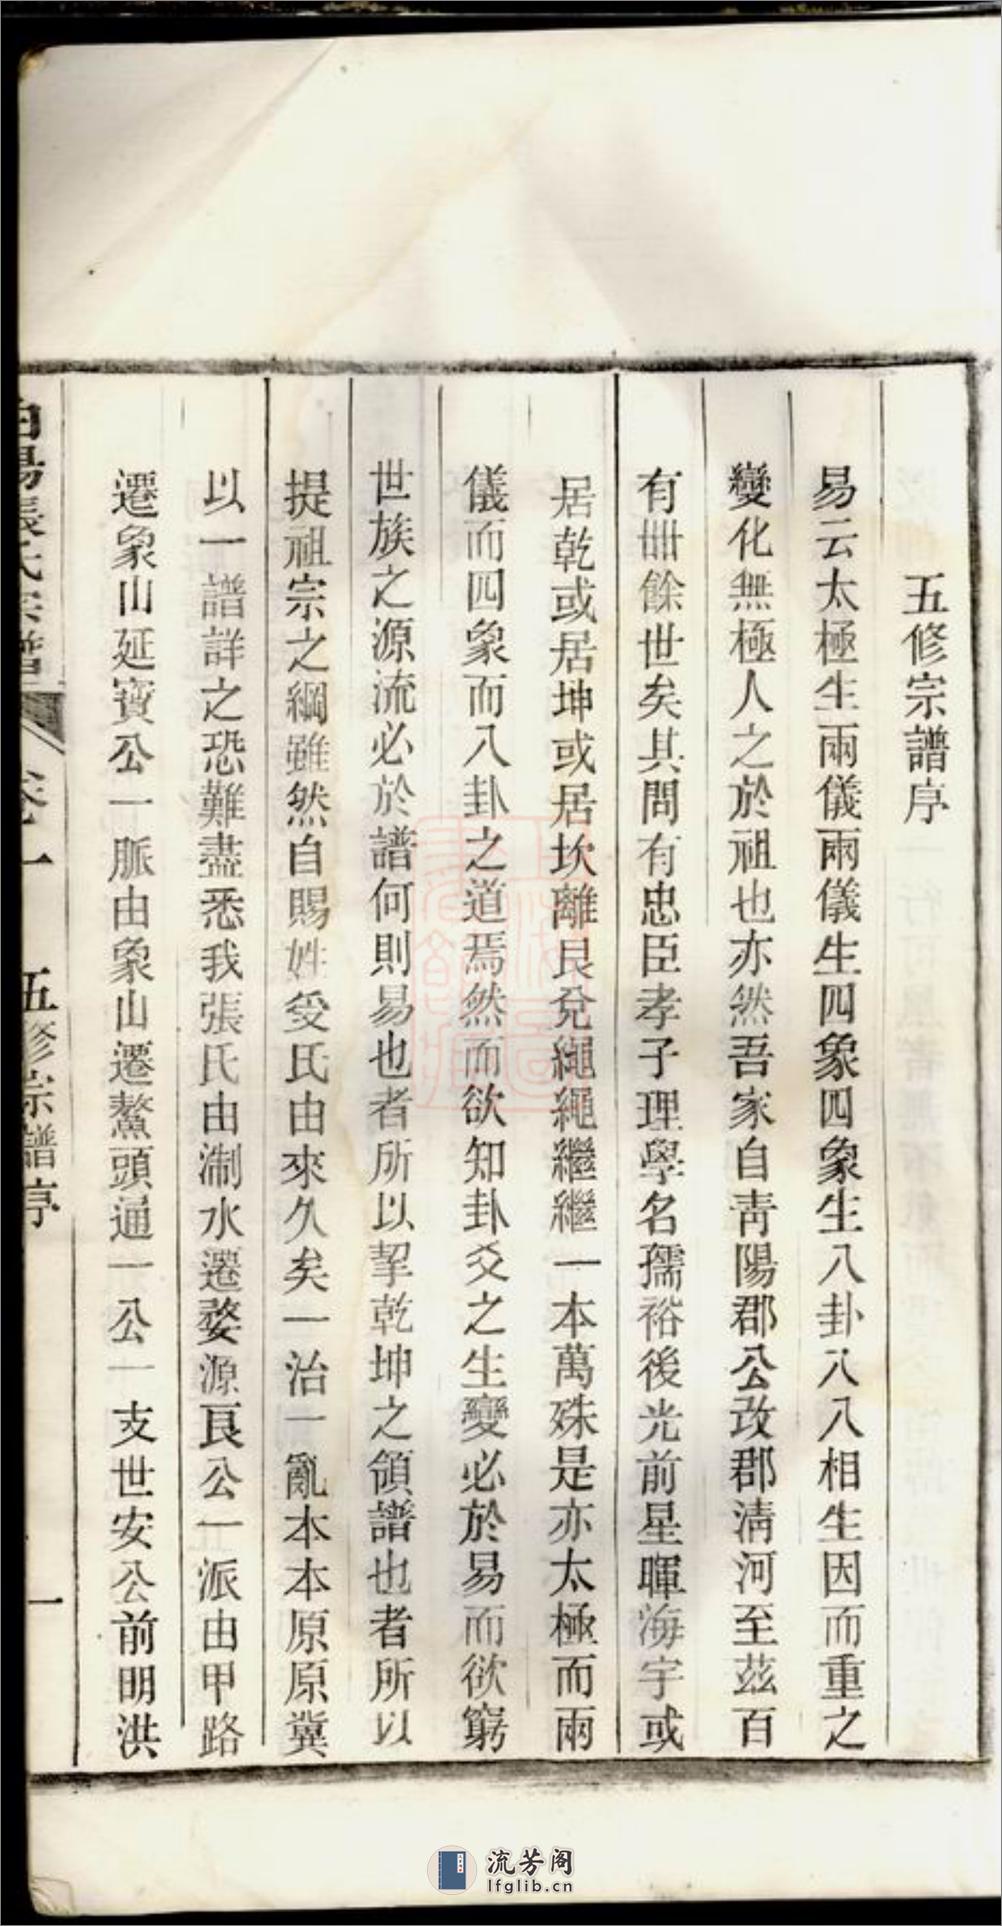 五修宗譜序
易云太極生兩儀兩儀生四象四象生八卦八八相生因而重之
變化無極人之於祖也亦然吾家自青陽郡公改郡清河至茲百
有卌餘世矣其問有忠臣孝子理學名孺裕後光前星暉海宇或
居乾或居坤或居坎離艮兌繩繩繼繼一本萬殊是亦太極而兩
儀而四象而八卦之道焉然而欲知卦爻之生變必於易而欲窮
世族之源流必於譜何則易也者所以挈乾坤之領譜也者所以
提祖宗之綱雖然自賜姓受氏由來久矣一治一亂本本原原冀
以一譜詳之恐難盡悉我張氏由淛水遷婺源良公一派由甲路
遷象山延寶公一脈由象山遷鰲頭通一公一支世安公前明洪
陽張氏宗譜 卷一 五修宗譜序 一
流芳阁
lfglib.cn